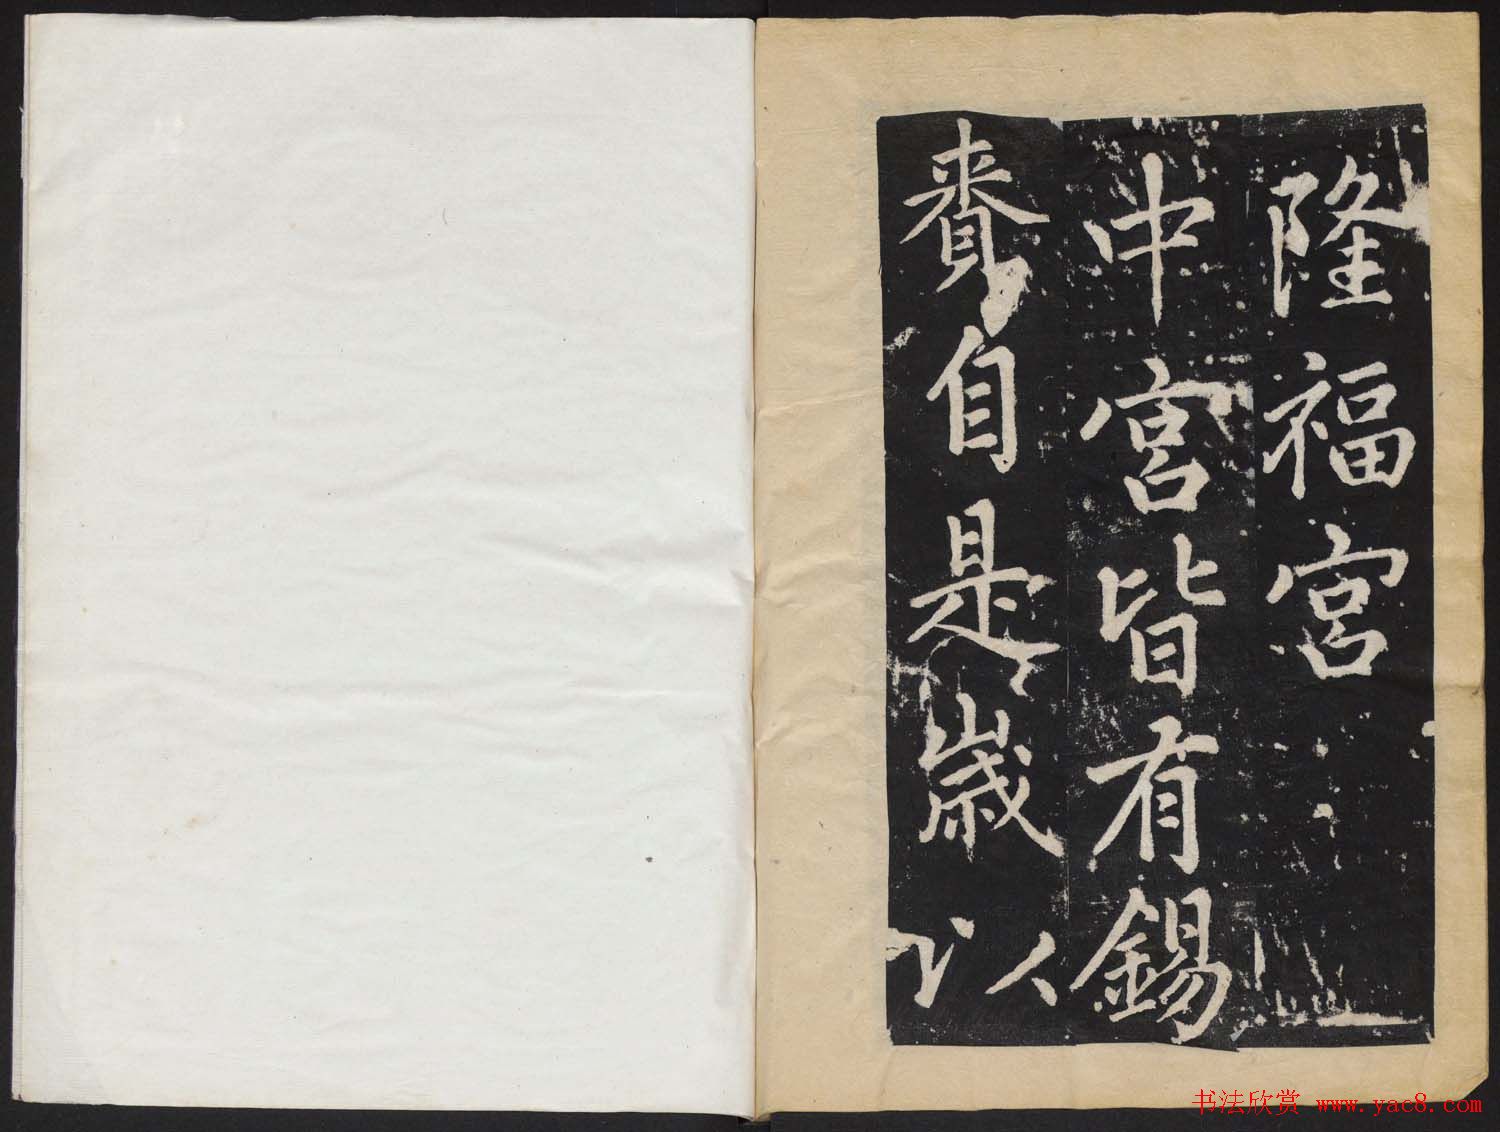 隆福宫
中宫皆有錫
賚自是歳以
书法欣赏 www.yac8.com